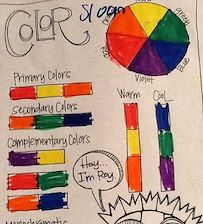 COLOR
orange
green
Red
Blue
Violet
Primary Colors
Warm
Cool
Secondary Colors
Complementary Colors
Hey...
I'm Roy.
Monochromatic